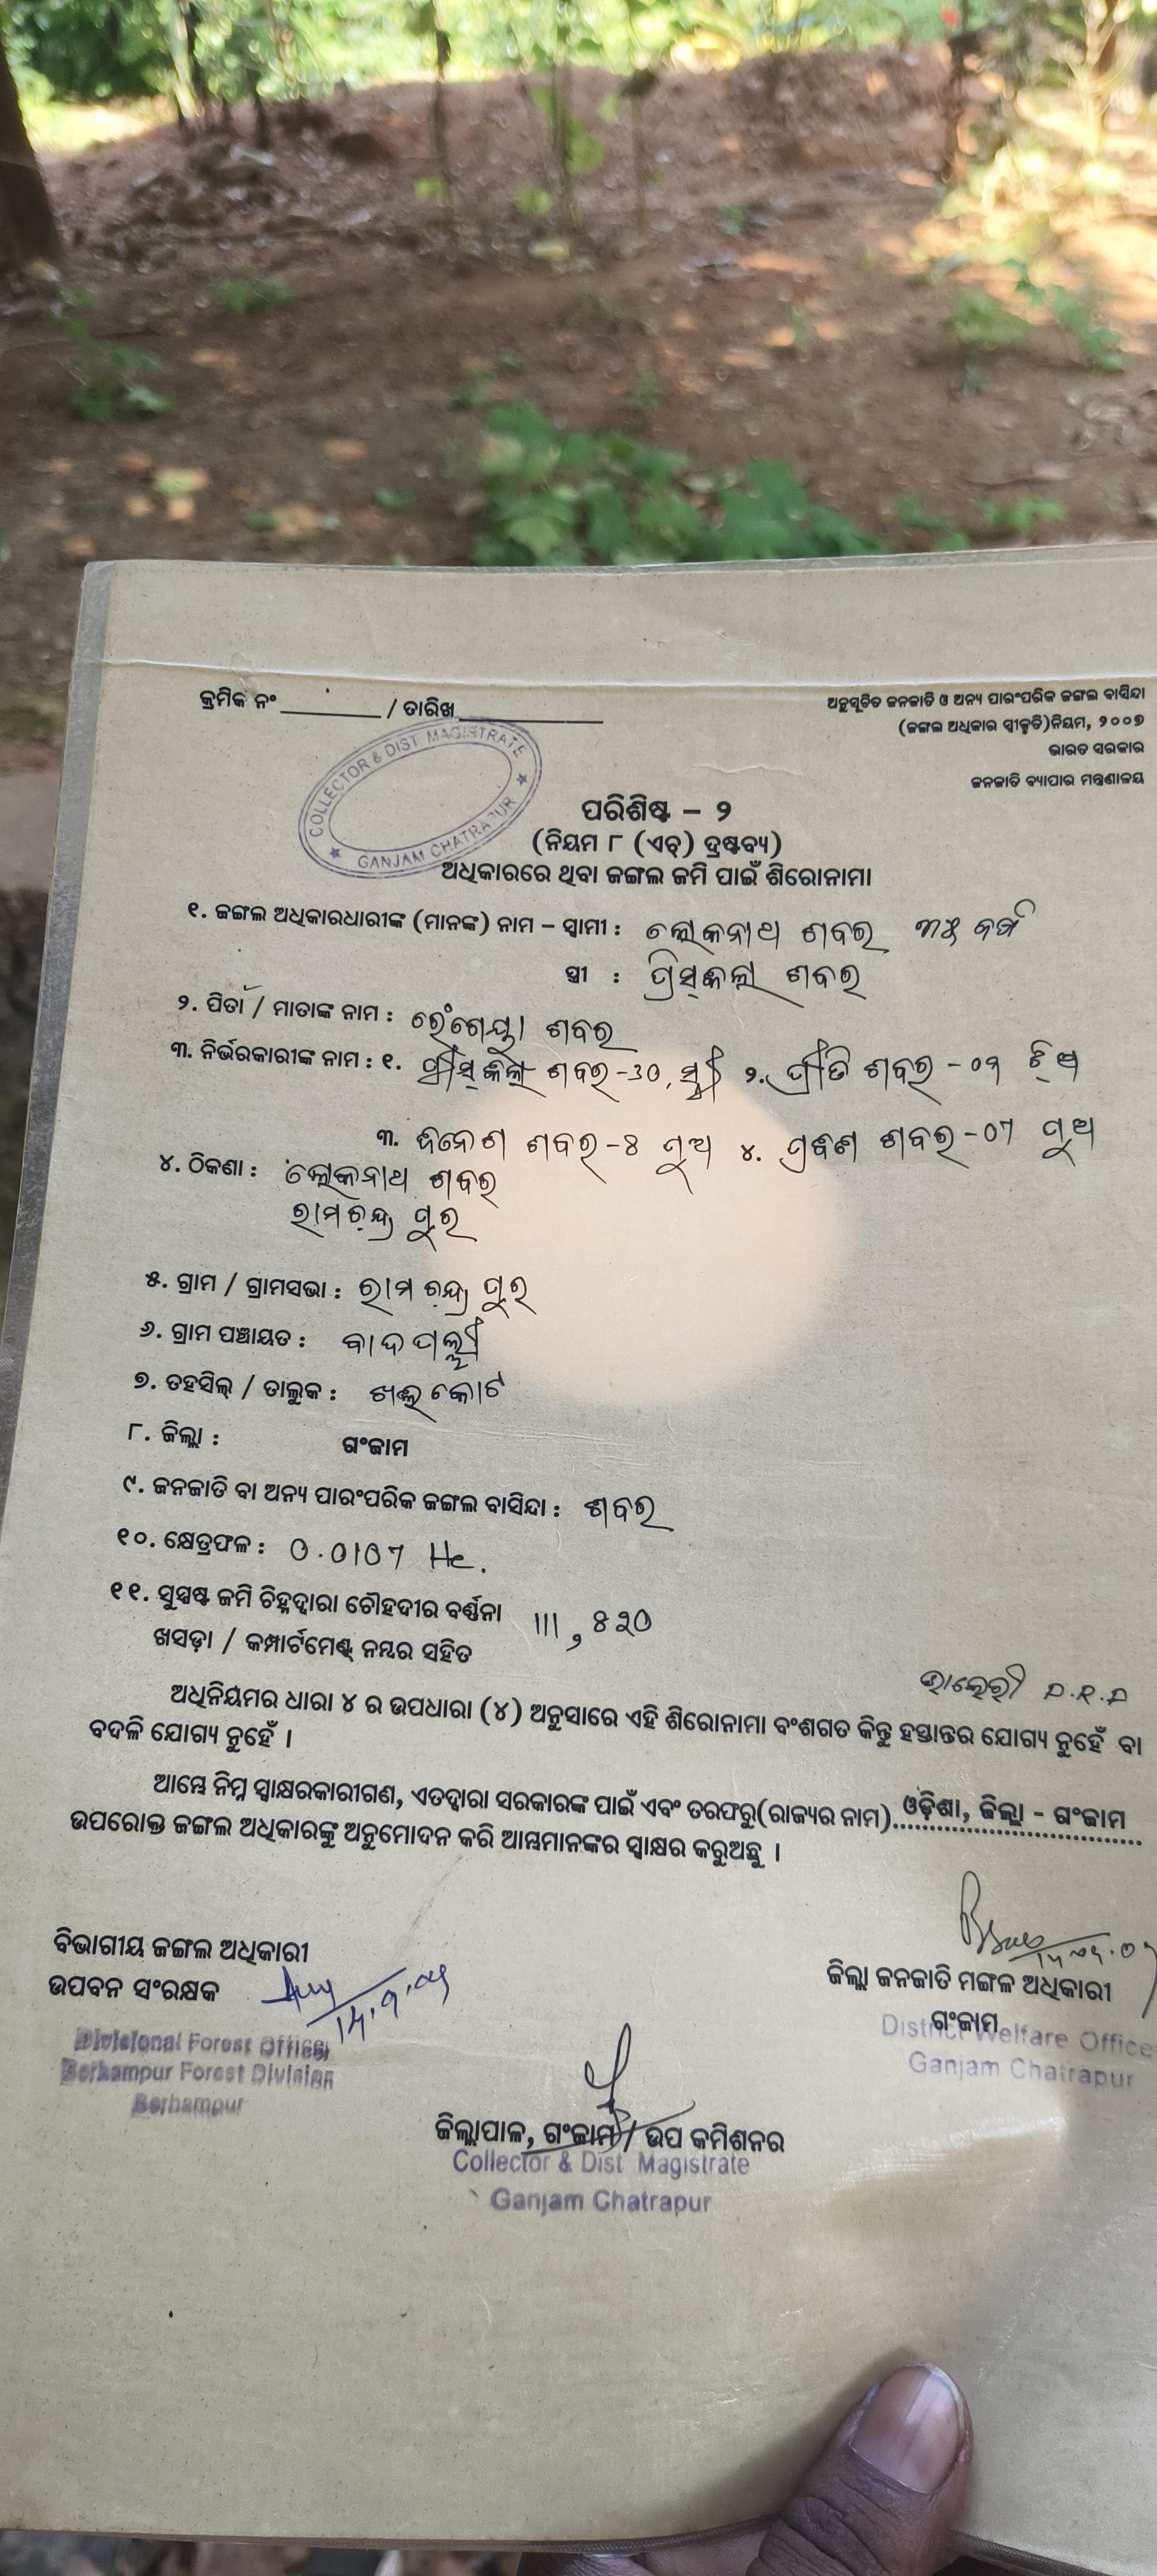 କ୍ରମିକ ନଂ ________ / ତାରିଖ ____________
ଅନୁସୂଚିତ ଜନଜାତି ଓ ଅନ୍ୟ ପାରଂପରିକ ଜଙ୍ଗଲ ବାସିନ୍ଦା
(ଜଙ୍ଗଲ ଅଧିକାର ସ୍ୱୀକୃତି)ନିୟମ, ୨୦୦୭
ଭାରତ ସରକାର
ଜନଜାତି ବ୍ୟାପାର ମନ୍ତ୍ରଣାଳୟ
COLLECTOR & DIST MAGISTRATE
★ GANJAM CHATRAPUR ★
ପରିଶିଷ୍ଟ – ୨
(ନିୟମ ୮ (ଏଚ୍) ଦ୍ରଷ୍ଟବ୍ୟ)
ଅଧିକାରରେ ଥିବା ଜଙ୍ଗଲ ଜମି ପାଇଁ ଶିରୋନାମା
୧. ଜଙ୍ଗଲ ଅଧିକାରଧାରୀଙ୍କ (ମାନଙ୍କ) ନାମ – ସ୍ୱାମୀ : ଲୋକନାଥ ଶବର ୩୫ ବର୍ଷ
ସ୍ତ୍ରୀ : ପ୍ରିସ୍କିଲା ଶବର
୨. ପିତା / ମାତାଙ୍କ ନାମ : ରେଂଗେୟା ଶବର
୩. ନିର୍ଭରକାରୀଙ୍କ ନାମ : ୧. ଶବର -30, ସ୍ତ୍ରୀ ୨. ପ୍ରୀତି ଶବର - ଝିଅ
୩. ଦିନେଶ ଶବର -8 ପୁଅ ୪. ଶବର -07 ପୁଅ
୪. ଠିକଣା : ଲୋକନାଥ ଶବର
ରାମଚନ୍ଦ୍ର ପୁର
୫. ଗ୍ରାମ / ଗ୍ରାମସଭା : ରାମଚନ୍ଦ୍ର ପୁର
୬. ଗ୍ରାମ ପଞ୍ଚାୟତ : ବାଦପଲ୍ଲୀ
୭. ତହସିଲ୍ / ତାଲୁକ : ଖଲିକୋଟ
୮. ଜିଲ୍ଲା : ଗଂଜାମ
୯. ଜନଜାତି ବା ଅନ୍ୟ ପାରଂପରିକ ଜଙ୍ଗଲ ବାସିନ୍ଦା : ଶବର
୧୦. କ୍ଷେତ୍ରଫଳ : 0.0107 He.
୧୧. ସୁସ୍ପଷ୍ଟ ଜମି ଚିହ୍ନଦ୍ୱାରା ଚୌହଦୀର ବର୍ଣ୍ଣନା 111, ୫୨୦
ଖସଡ଼ା / କମ୍ପାର୍ଟମେଣ୍ଟ୍ ନମ୍ବର ସହିତ
ଅଧିନିୟମର ଧାରା ୪ ର ଉପଧାରା (୪) ଅନୁସାରେ ଏହି ଶିରୋନାମା ବଂଶଗତ କିନ୍ତୁ ହସ୍ତାନ୍ତର ଯୋଗ୍ୟ ନୁହେଁ ବା
ବଦଳି ଯୋଗ୍ୟ ନୁହେଁ ।
ଆମ୍ଭେ ନିମ୍ନ ସ୍ୱାକ୍ଷରକାରୀଗଣ, ଏତଦ୍ୱାରା ସରକାରଙ୍କ ପାଇଁ ଏବଂ ତରଫରୁ(ରାଜ୍ୟର ନାମ) ଓଡ଼ିଶା, ଜିଲ୍ଲା - ଗଂଜାମ
ଉପରୋକ୍ତ ଜଙ୍ଗଲ ଅଧିକାରଙ୍କୁ ଅନୁମୋଦନ କରି ଆମ୍ଭମାନଙ୍କର ସ୍ୱାକ୍ଷର କରୁଅଛୁ ।
ବିଭାଗୀୟ ଜଙ୍ଗଲ ଅଧିକାରୀ
ଉପବନ ସଂରକ୍ଷକ
Divisional Forest Officer
Berhampur Forest Division
Berhampur
ଜିଲ୍ଲା ଜନଜାତି ମଙ୍ଗଳ ଅଧିକାରୀ
ଗଂଜାମ
District Welfare Officer
Ganjam Chatrapur
ଜିଲ୍ଲାପାଳ, ଗଂଜାମ / ଉପ କମିଶନର
Collector & Dist Magistrate
Ganjam Chatrapur